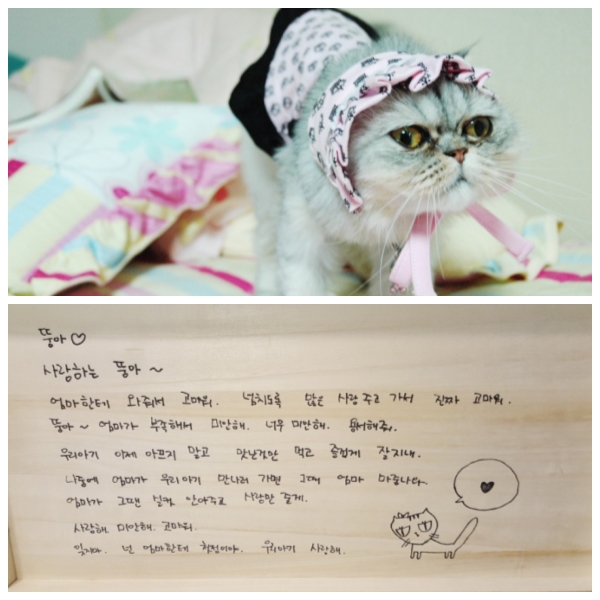 뚱아♡
사랑하는 뚱아 ~
엄마한테 와줘서 고마워. 넘치도록 많은 사랑 주고 가서 진짜 고마워.
뚱아 ~ 엄마가 부족해서 미안해. 너무 미안해. 용서해줘.
우리아기 이제 아프지 말고 맛난것만 먹고 즐겁게 잘지내.
나중에 엄마가 우리아기 만나러 가면 그때 엄마 마중나와.
엄마가 그땐 실컷 안아주고 사랑만 줄게.
사랑해. 미안해. 고마워.
넌 엄마한테 최고이야. 우리아기 사랑해.